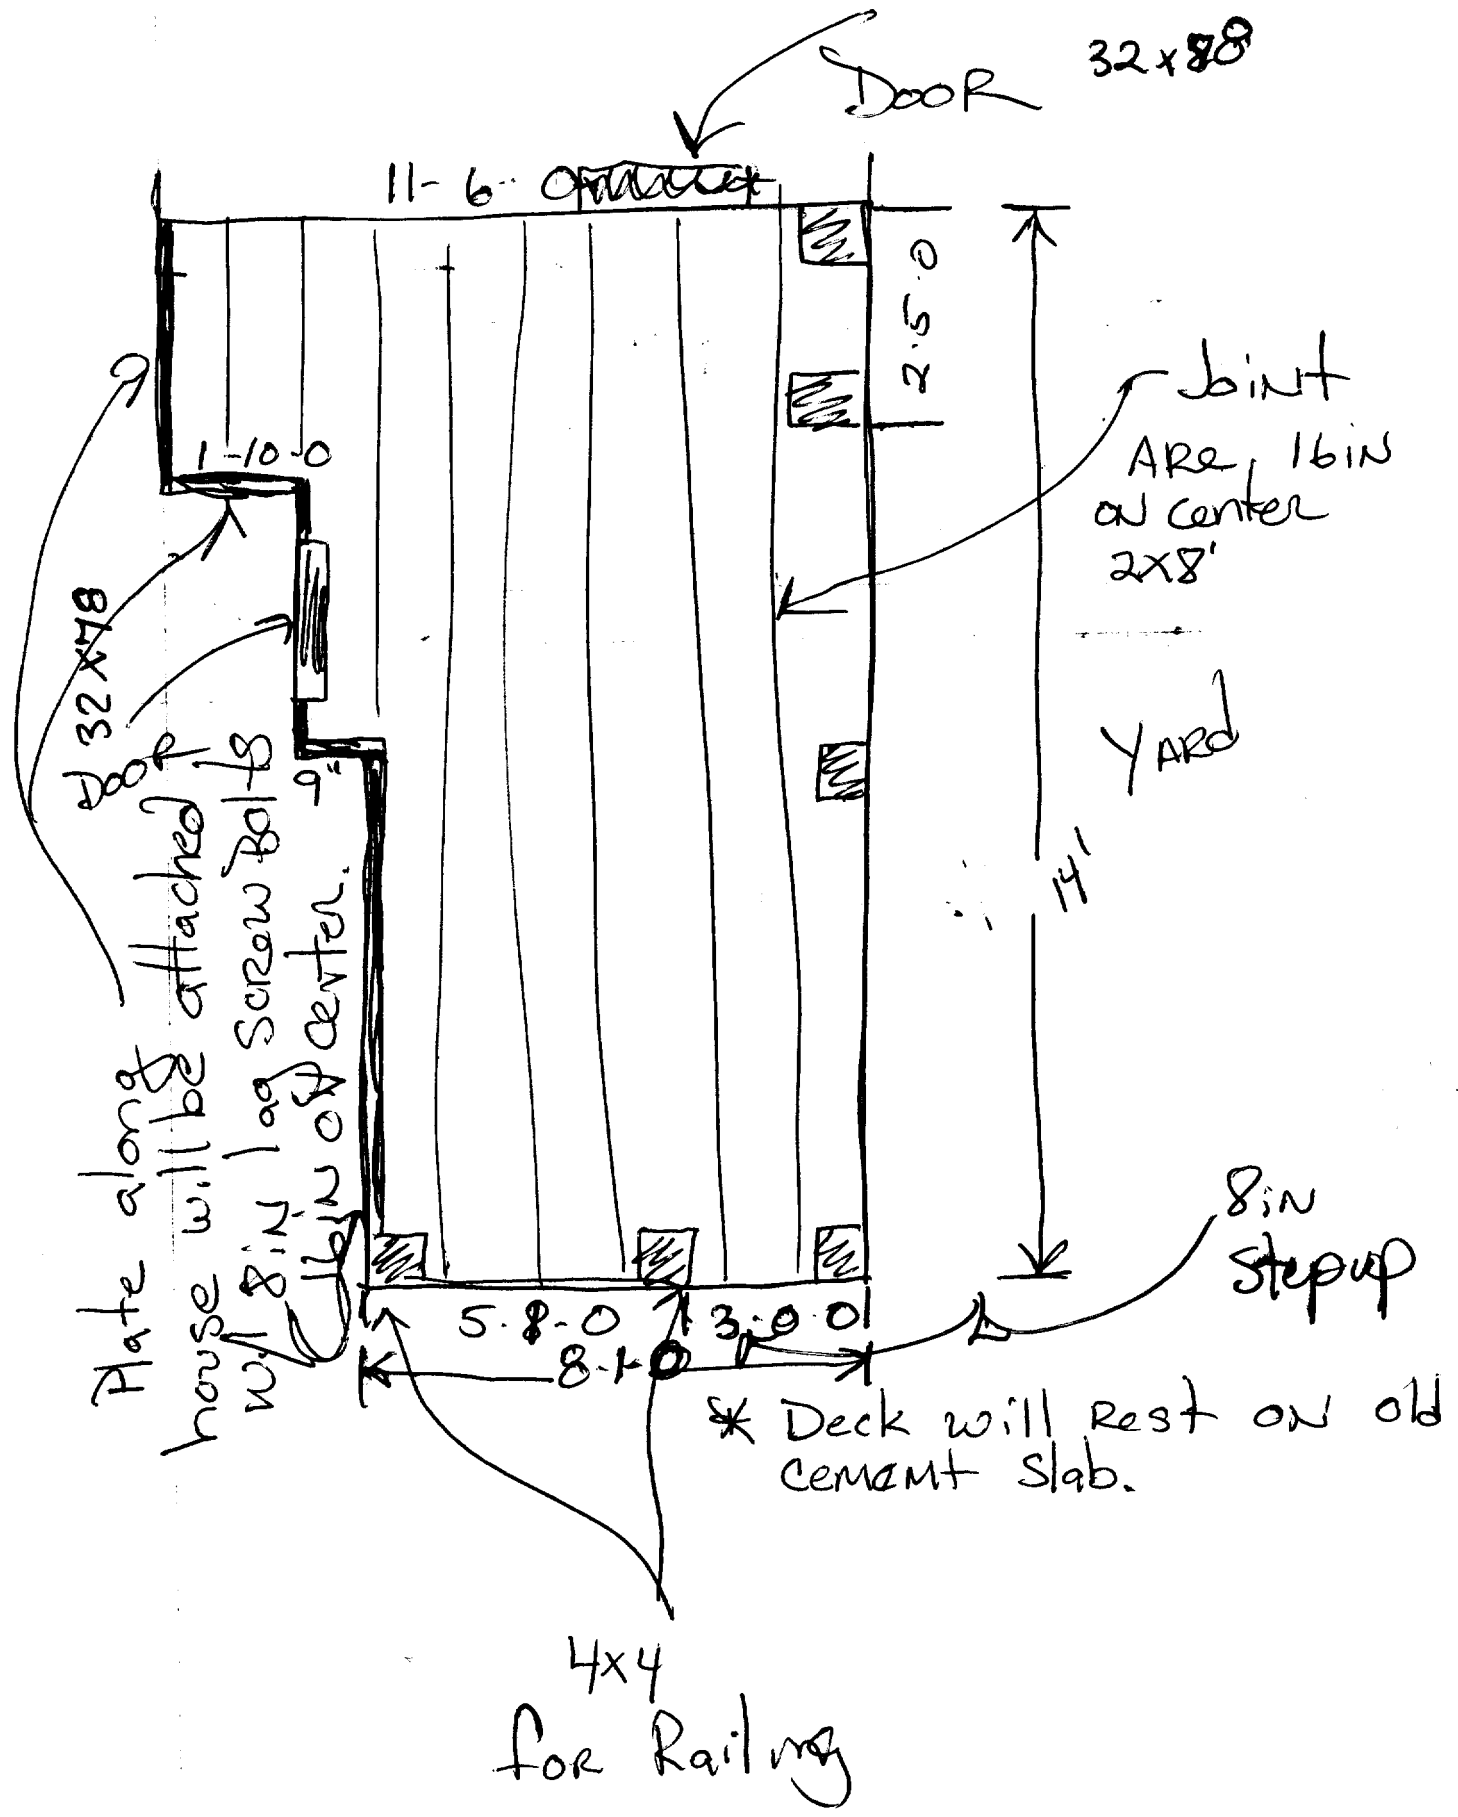 DOOR 32 x 80
11-6-0
2.5.0
Joint
ARe, 16iN
oN center
2x8'
1-10-0
32 x 78
Door
9"
YARd
14'
Plate along
house will be attached
w/ 8iN lag Screw Bolts
16iN oN center.
8iN
Stepup
5-8-0
3.0.0
8-1-0
* Deck will Rest ON old
cement Slab.
4x4
for Railing